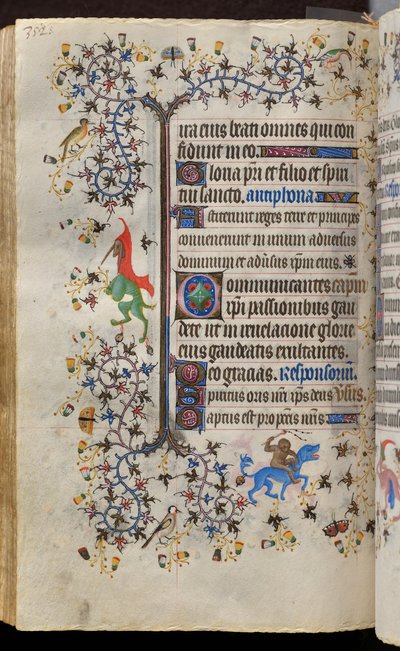 352
ira eius beati omnes qui con
fidunt in eo.
Gloria pri et filio et spiri
tui sancto. antiphona.
Astiterunt reges terre et principes
convenerunt in unum adversus
dominum et adversus xpm eius.
Communicantes
xpi passionibus gau
dete ut in revelacione glorie
eius gaudeatis exultantes.
Deo gracias. Responsoriu.
Spiritus oris nri xps deus
Captus est pro peccis nris